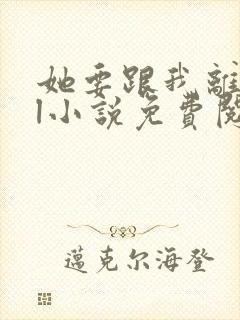 她要跟我離
1小說免費閱
邁克尔海登